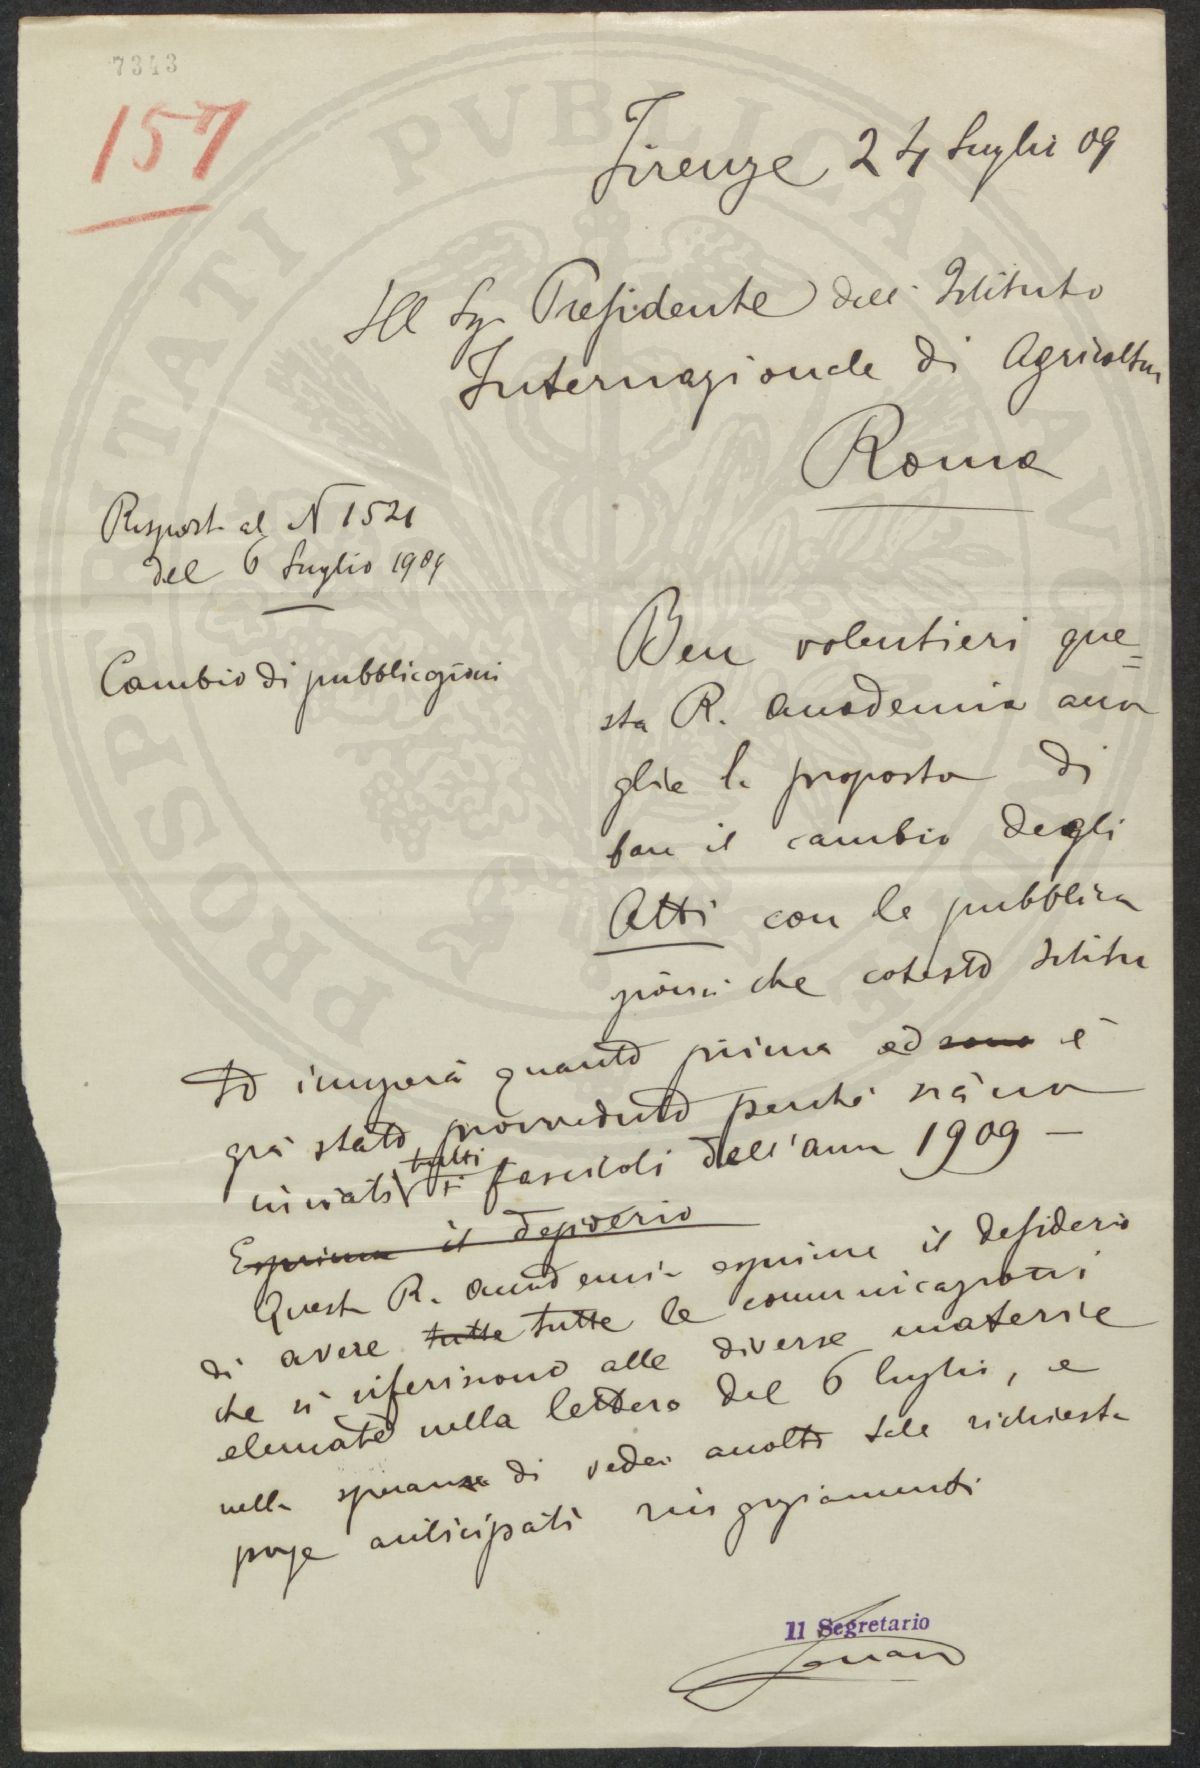 7343
157
Firenze 24 Luglio 09
Ill Sg. Presidente dell' Istituto
Internazionale di Agricoltura
Roma
Risposta al N 1521
del 6 Luglio 1909
Cambio di pubblicazioni
Ben volentieri que=
sta R. Accademia acco
glie la proposta di
fare il cambio degli
Atti con le pubblica
zioni che cotesto Istitu
to inizierà quanto prima ed sono è
già stato provveduto perchè siano
inviati tutti i fascicoli dell'anno 1909 -
Esprime il desiderio
Questa R. Accademia esprime il desiderio
di avere tutte tutte le comunicazioni
che si riferiscono alle diverse materie
elencate nella lettera del 6 luglio, e
nella speranza di veder accolta tale richiesta
porge anticipati ringraziamenti
Il Segretario
PROSPERITATI PVBLICAE AVGENDAE